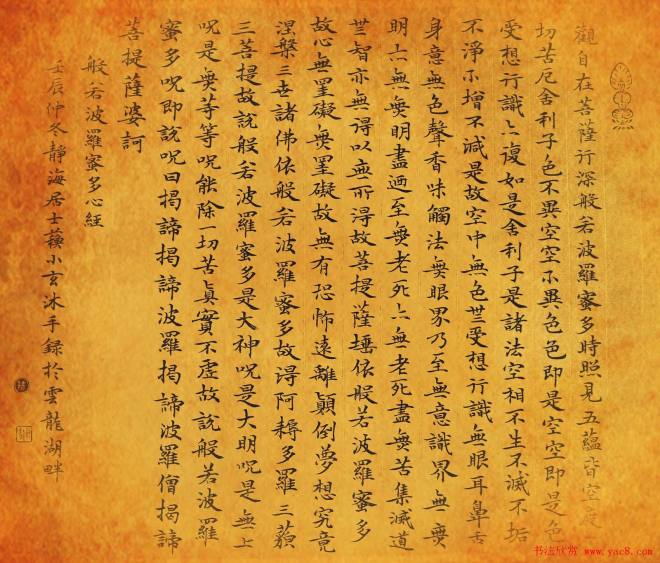 觀自在菩薩行深般若波羅蜜多時照見五蘊皆空度
切苦厄舍利子色不異空空不異色色即是空空即是色
受想行識亦復如是舍利子是諸法空相不生不滅不垢
不淨不增不減是故空中無色無受想行識無眼耳鼻舌
身意無色聲香味觸法無眼界乃至無意識界無無
明亦無無明盡迺至無老死亦無老死盡無苦集滅道
無智亦無得以無所得故菩提薩埵依般若波羅蜜多
故心無罣礙無罣礙故無有恐怖遠離顛倒夢想究竟
涅槃三世諸佛依般若波羅蜜多故得阿耨多羅三藐
三菩提故說般若波羅蜜多是大神呪是大明呪是無上
呪是無等等呪能除一切苦真實不虛故說般若波羅
蜜多呪即說呪曰揭諦揭諦波羅揭諦波羅僧揭諦
菩提薩婆訶
般若波羅蜜多心經
壬辰仲冬靜海居士蘓小玄沐手録於雲龍湖畔
书法欣赏 www.yac8.com